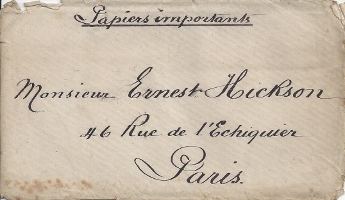 Papiers importants
Monsieur Ernest Hickson
46 Rue de l'Echiquier
Paris.